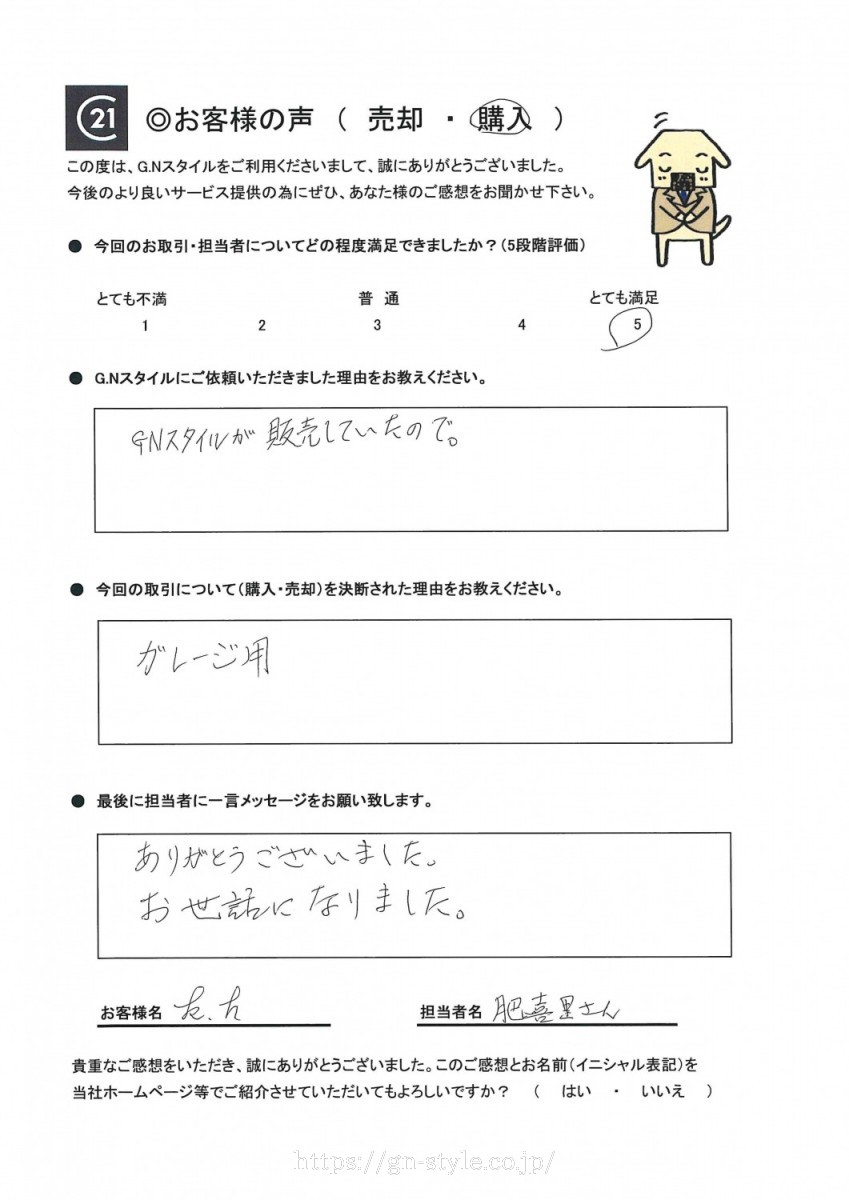 21 ◎お客様の声 ( 売却 ・ 購入 )
この度は、G.Nスタイルをご利用くださいまして、誠にありがとうございました。
今後のより良いサービス提供の為にぜひ、あなた様のご感想をお聞かせ下さい。
● 今回のお取引・担当者についてどの程度満足できましたか？(5段階評価)
とても不満 普 通 とても満足
1 2 3 4 5
● G.Nスタイルにご依頼いただきました理由をお教えください。
GNスタイルが販売していたので。
● 今回の取引について(購入・売却)を決断された理由をお教えください。
ガレージ用
● 最後に担当者に一言メッセージをお願い致します。
ありがとうございました。
お世話になりました。
お客様名
担当者名 肥喜里さん
貴重なご感想をいただき、誠にありがとうございました。このご感想とお名前(イニシャル表記)を
当社ホームページ等でご紹介させていただいてもよろしいですか？ ( はい ・ いいえ )
https://gn-style.co.jp/